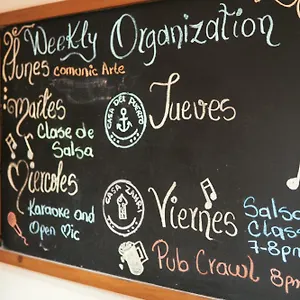 Weekly Organization
Lunes
comunic Arte
Martes
Clase de
Salsa
Miercoles
Karaoke and
Open Mic
CASA DEL PUERTO
CASA
Jueves
Viernes
Salsa
Class
7-8pm
Pub Crawl 8pm